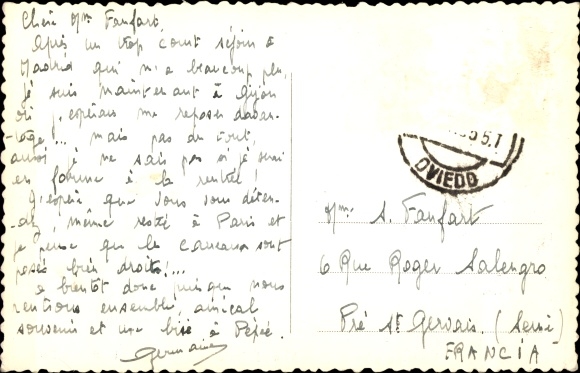 Chère Mme Fanfart
Après un trop court séjour à
Madrid qui m'a beaucoup plu,
je suis maintenant à Gijon
où j'espérais me reposer davan-
-tage!... mais pas du tout,
aussi je ne sais pas si je serai
en forme à la rentrée!
J'espère que vous vous déten-
-dez, même resté à Paris et
je pense que les carreaux sont
posés bien droits!...
à bientôt donc puisque nous
rentrons ensemble amical
souvenir et une bise à Pépée.
Germaine
OVIEDO
Mme S. Fanfart
6 Rue Roger Salengro
Pré St Gervais. (Seine)
FRANCIA